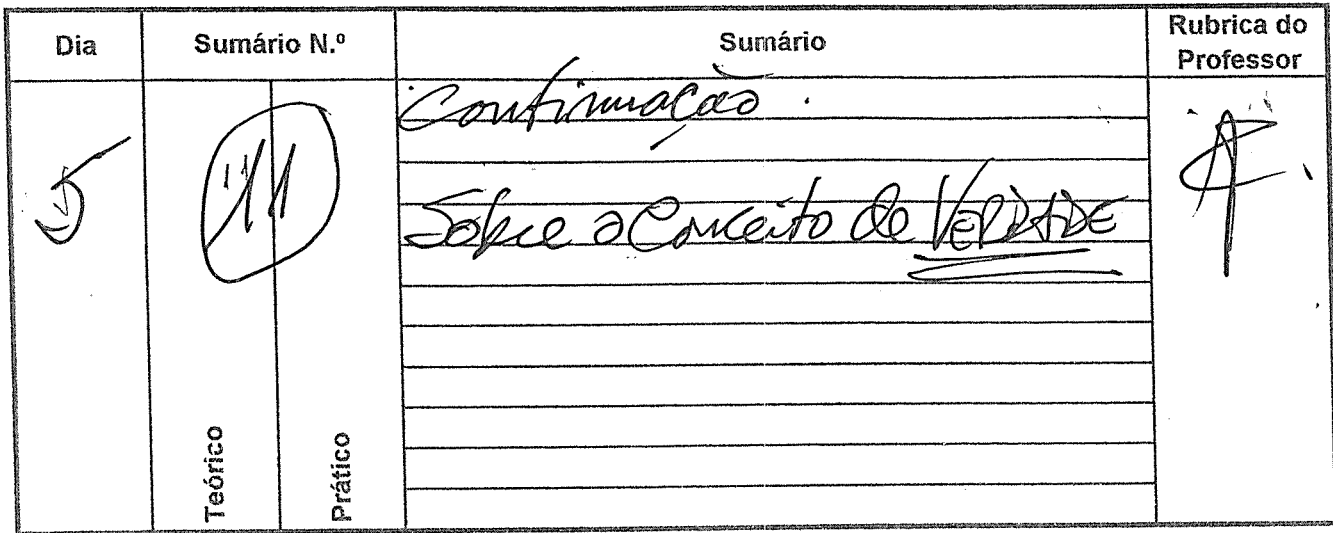 Dia Sumário N.º Sumário Rubrica do Professor
5 11 Continuação.
Sobre o Conceito de VERDADE
Teórico Prático